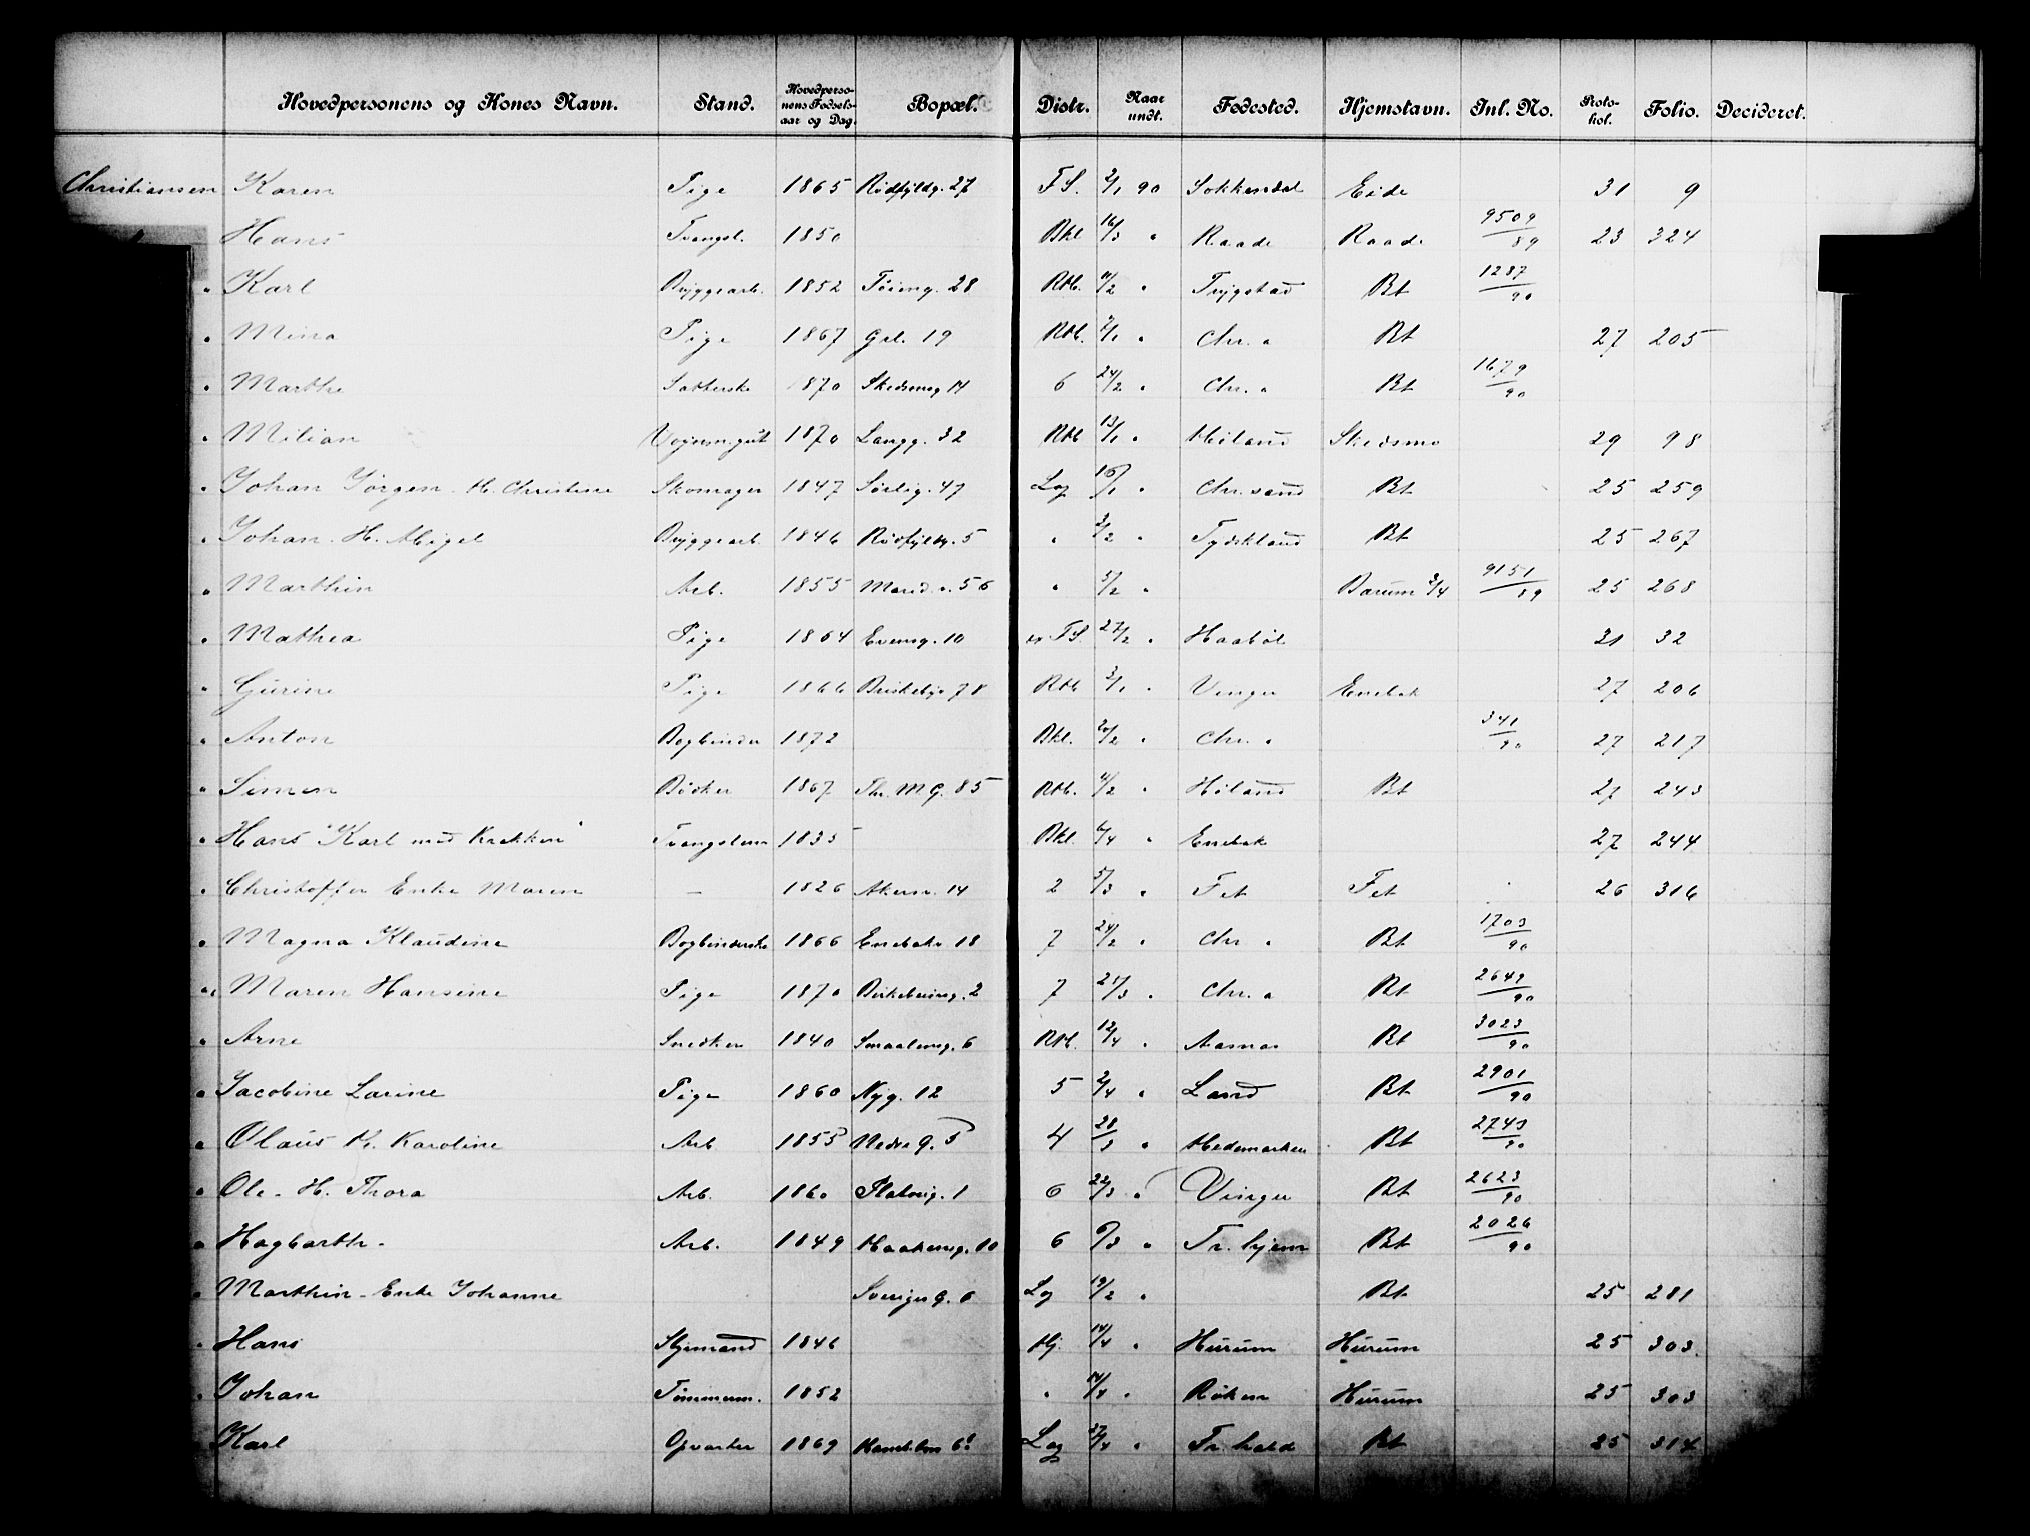 Hovedpersonens og Kones Navn. Stand. Hovedpersonens Fødselsaar og Dag. Bopæl. Distr. Naar undt. Fødested. Hjemstavn. Inl. No. Protokol. Folio. Decideret.
Christiansen Karen Pige 1865 Rødfyldg. 27 FS. 2/1 90 Sokkendal Eide 31 9
Hans Tvangsl. 1850 Bkl 16/3 " Raade Raade 9509/89 23 324
" Karl Bryggearb. 1852 Tøieng. 28 Rtb. 11/2 " Trygstad Bt 1287/90
" Mina Pige 1867 Grl. 19 Rtb. 7/1 " Chr. a Bt 27 205
" Marthe Satterske 1870 Skedsmog 14 6 24/2 " Chr. a Bt 1679/90
" Milian Vognm.gut 1870 Langg. 32 Rtb 13/1 " Høland Skedsmo 29 98
" Johan Jørgen H. Christine Skomager 1847 Sørlig. 47 Log 16/1 " Chr.sand Bt 25 259
" Johan H. Bryggearb. 1846 Rødfyldg. 5 " 3/2 " Tydskland Bt 25 267
" Marthin Arb. 1855 Marid.v. 56 " 5/2 " Bærum 2/4 9151/89 25 268
" Mathea Pige 1864 Evensg. 10 FS. 27/2 " Haabøl 31 32
" Gurine Pige 1866 Briskeby 78 Rtb 3/1 " Vinger Enebak 27 206
" Anton Bogbinder 1872 Bkl. 20/2 " Chr. a 341/90 27 217
" Simen Bødker 1867 Thr. M G. 85 Rtb. 11/2 " Høland Bt 27 243
" Hans "Karl med Krakken" Tvangslem 1835 Bkl. 6/4 " Enebak 27 244
" Christoffer Enke Maren – 1826 Akersv. 14 2 5/3 " Fet Fet 26 316
" Magna Klaudine Bogbinderske 1866 Enebakv 18 7 24/2 " Chr a Bt 1703/90
" Maren Hansine Pige 1870 Birkebeing. 2 7 21/3 " Chr. a Bt 2649/90
" Arne Snedker 1840 Smaaleng. 6 Rtb. 12/4 " Aasnæs Bt 3023/90
" Jacobine Larine Pige 1860 Nyg. 12 5 2/4 " Land Bt 2901/90
" Olaus H. Karoline Arb. 1855 Nedre G. 5 4 28/3 " Hedemarken Bt 2743/90
" Ole. H. Thora Arb. 1860 Platoug. 1 6 22/3 " Vinger Bt 2623/90
" Hagbarth. Arb. 1849 Haakonsg. 10 6 6/3 " Tr.hjem Bt 2026/90
" Marthin. Enke Johanne Sveriges G. 6 Log 19/2 " Bt 25 281
" Hans Styrmand 1846 Hj. 14/4 " Hurum Hurum 25 303.
" Johan Tømmerm. 1852 " 14/4 " Røken Hurum 25 303
Karl Opvarter 1869 Log 27/4 " Fr.hald Bt 25 314